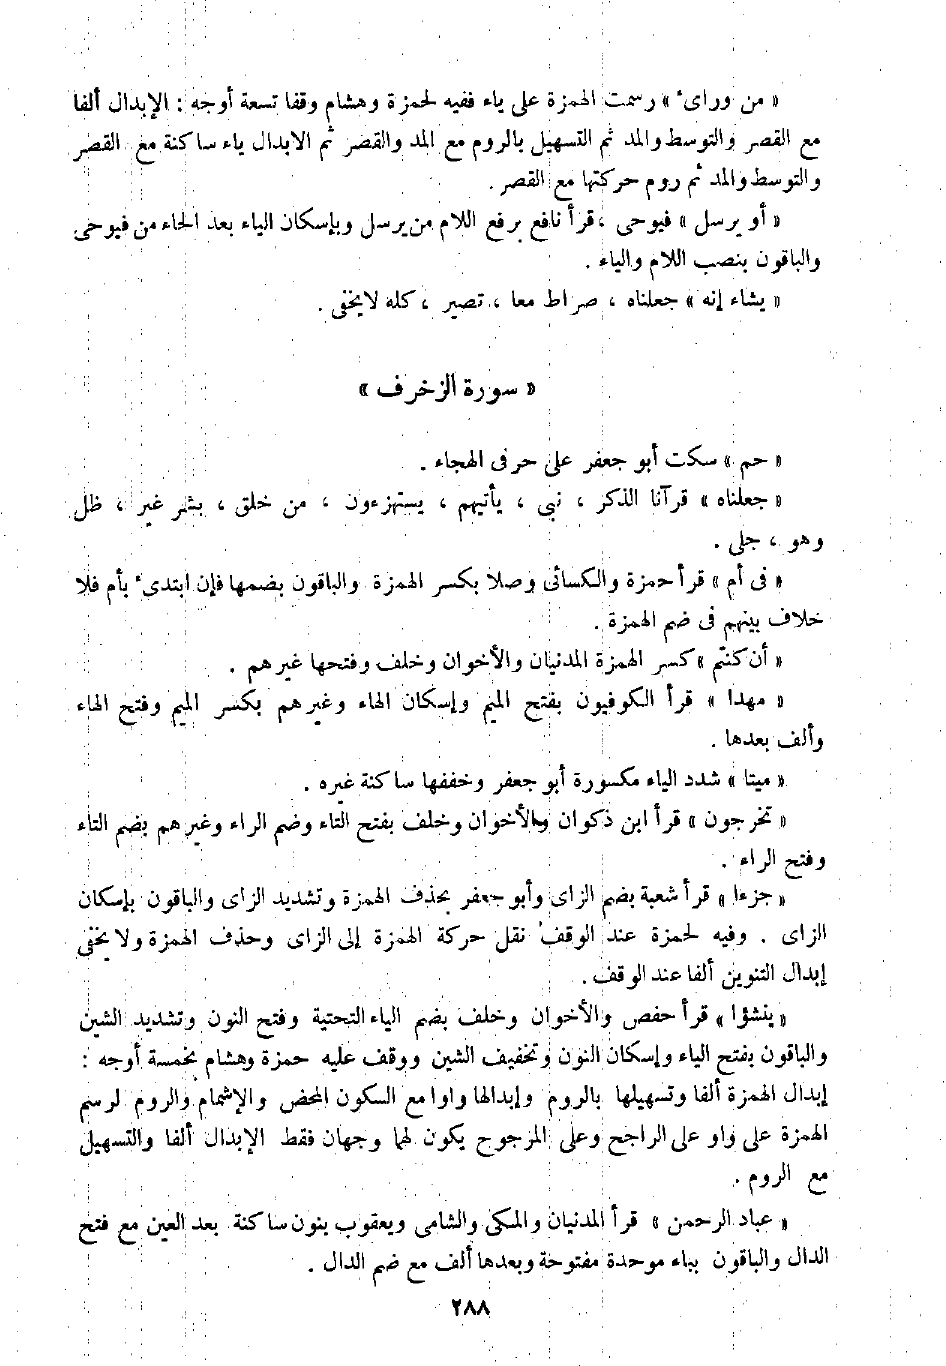 « من وراىء » رسمت الهمزة على ياء ففيه لحمزة وهشام وقفا تسعة أوجه : الإبدال ألفا
مع القصر والتوسط والمد ثم التسهيل بالروم مع المد والقصر ثم الابدال ياء ساكنة مع القصر
والتوسط والمد ثم روم حركتها مع القصر .
« أو يرسل » فيوحى ، قرأ نافع برفع اللام من يرسل وبإسكان الياء بعد الحاء من فيوحى
والباقون بنصب اللام والياء .
« يشاء إنه » جعلناه ، صراط معا ، تصير ، كله لا يخفى .
« سورة الزخرف »
« حم » سكت أبو جعفر على حرفى الهجاء .
« جعلناه » قرآنا الذكر ، نبى ، يأتيهم ، يستهزءون ، من خلق ، بشر غير ، ظل
وهو ، جلى .
« فى أم » قرأ حمزة والكسائى وصلا بكسر الهمزة والباقون بضمها فإن ابتدىء بأم فلا
خلاف بينهم فى ضم الهمزة .
« أن كنتم » كسر الهمزة المدنيان والأخوان وخلف وفتحها غيرهم .
« مهدا » قرأ الكوفيون بفتح الميم وإسكان الهاء وغيرهم بكسر الميم وفتح الهاء
وألف بعدها .
« ميتا » شدد الياء مكسورة أبو جعفر وخففها ساكنة غيره .
« تخرجون » قرأ ابن ذكوان والأخوان وخلف بفتح التاء وضم الراء وغيرهم بضم التاء
وفتح الراء .
« جزءا » قرأ شعبة بضم الزاى وأبو جعفر بحذف الهمزة وتشديد الزاى والباقون بإسكان
الزاى . وفيه لحمزة عند الوقف نقل حركة الهمزة إلى الزاى وحذف الهمزة ولا يخفى
إبدال التنوين ألفا عند الوقف .
« ينشؤا » قرأ حفص والأخوان وخلف بضم الياء التحتية وفتح النون وتشديد الشين
والباقون بفتح الياء وإسكان النون وتخفيف الشين ووقف عليه حمزة وهشام بخمسة أوجه :
إبدال الهمزة ألفا وتسهيلها بالروم وإبدالها واوا مع السكون المحض والإشمام والروم لرسم
الهمزة على واو على الراجح وعلى المرجوح يكون لهما وجهان فقط الإبدال ألفا والتسهيل
مع الروم .
« عباد الرحمن » قرأ المدنيان والمكى والشامى ويعقوب بنون ساكنة بعد العين مع فتح
الدال والباقون بباء موحدة مفتوحة وبعدها ألف مع ضم الدال .
٢٨٨